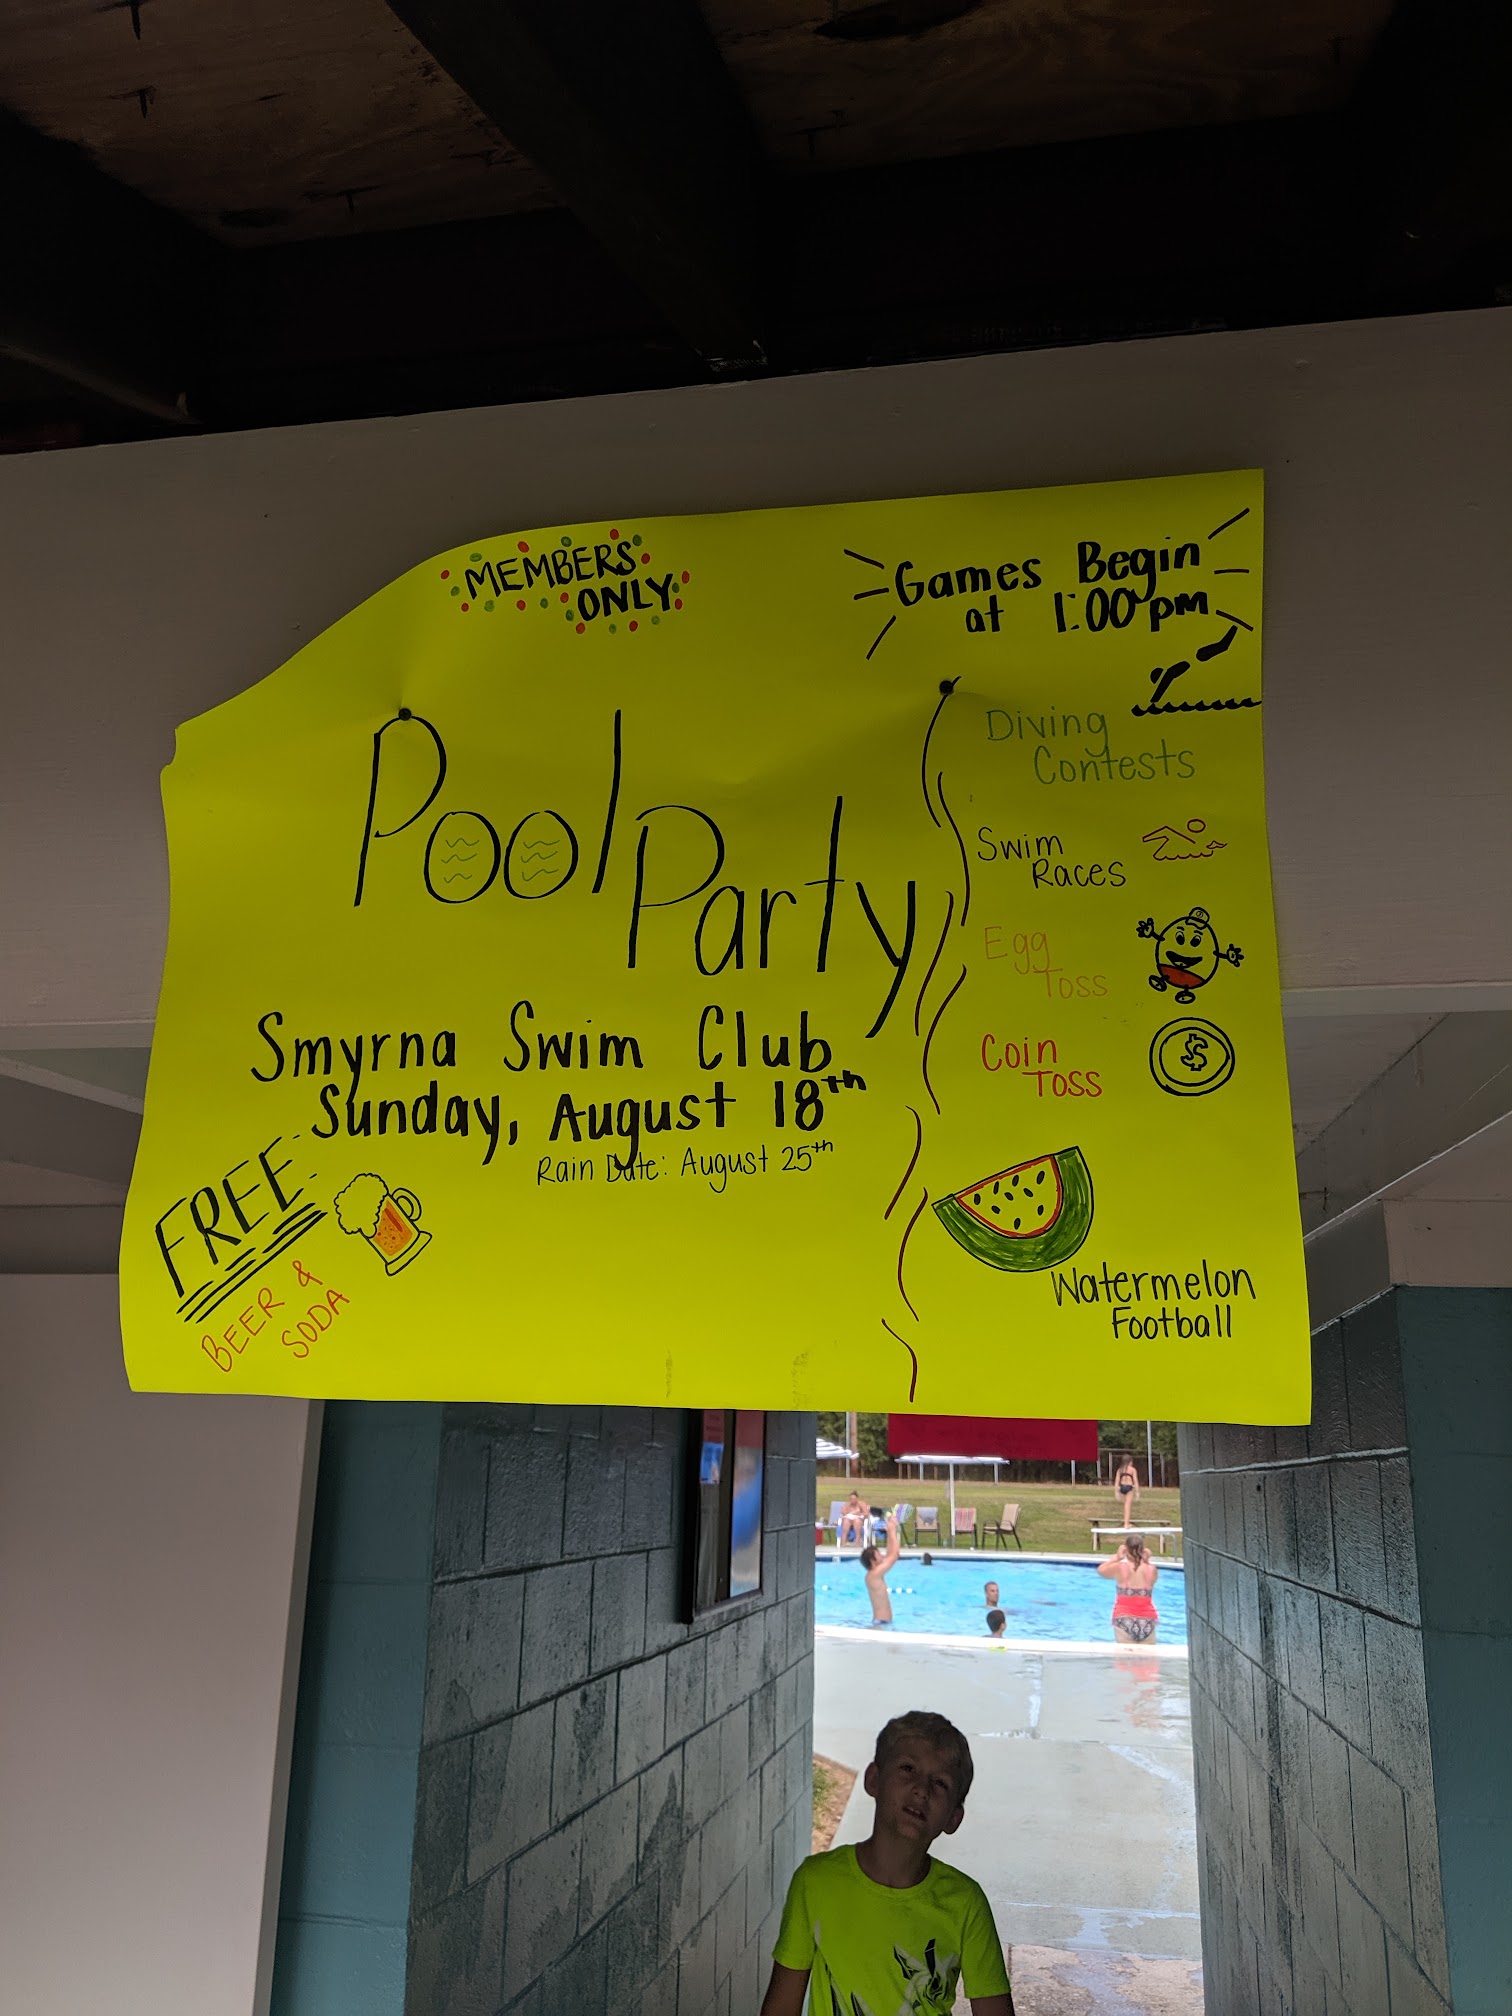 MEMBERS
ONLY
Pool
Party
Smyrna Swim Club
Sunday, August 18th
Rain Date: August 25th
FREE
BEER &
SODA
Games Begin
at 1:00 pm
Diving
Contests
Swim
Races
Egg
Toss
Coin
Toss
$
Watermelon
Football